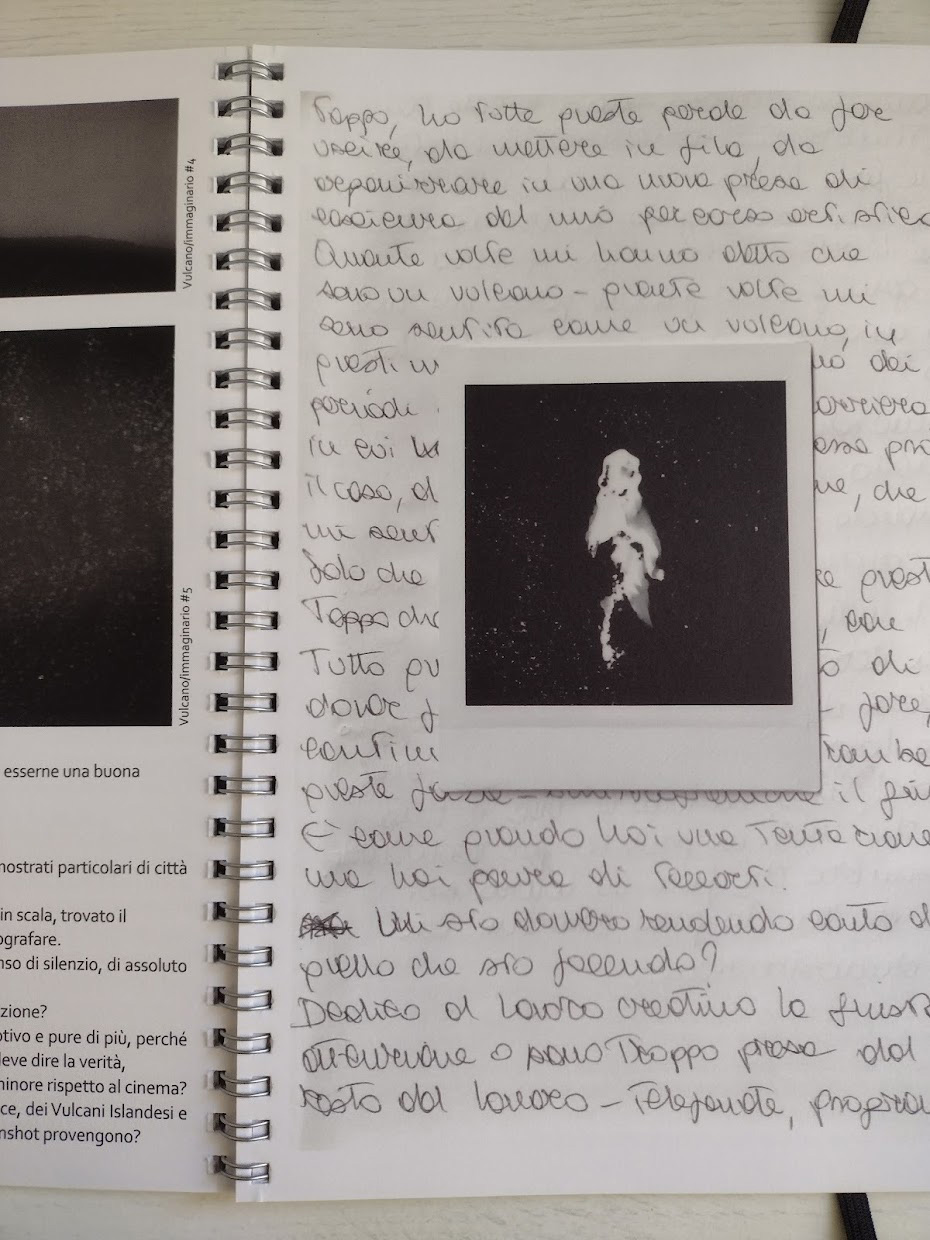 Vulcano/immaginario #4
Vulcano/immaginario #5
esserne una buona
nostrati particolari di città
in scala, trovato il
ografare.
nso di silenzio, di assoluto
zione?
otivo e pure di più, perché
deve dire la verità,
minore rispetto al cinema?
ce, dei Vulcani Islandesi e
nshot provengono?
Tappo, ho tutte queste parole da far
uscire, da mettere in fila, da
organizzare in una nuova presa di
coscienza del mio percorso artistico
Quante volte mi hanno detto che
sono un vulcano – quante volte mi
sono sentita come un vulcano, in
questi
periodi
in cui
il caso, d
mi sent
Solo che
Tappo
Tutto qu
dover f
continu
queste il
È come quando hai una tentazione
ma hai paura di
Mi sto davvero rendendo conto d
quello che sto facendo?
Dedico al lavoro creativo la giusta
attenzione o sono troppo presa dal
resto del lavoro – Telefonate,